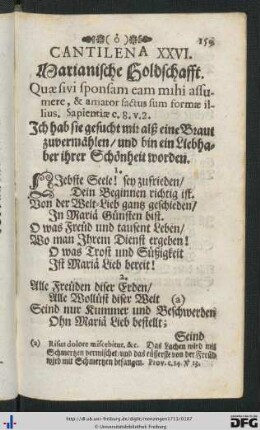 (o) 159
CANTILENA XXVI.
Marianische Holdschafft.
Quæsivi sponsam eam mihi assu-
mere, & amator factus sum formæ il-
lius. Sapientiæ c. 8. v. 2.
Ich hab sie gesucht mir alß eine Braut
zuvermählen / und bin ein Liebha-
ber ihrer Schönheit worden.
1.
Liebste Seele! sey zufrieden /
Dein Beginnen richtig ist.
Von der Welt-Lieb gantz geschieden /
In Mariä Günsten bist.
O was Freüd und tausent Leben /
Wo man Ihrem Dienst ergeben!
O was Trost und Süssigkeit
Ist Mariä Lieb bereit!
2.
Alle Freüden diser Erden /
Alle Wollüst diser Welt (a)
Seind nur Kummer und Beschwerden
Ohn Mariä Lieb bestellt;
Seind
(a) Risus dolore miscebitur, &c. Das Lachen wird mit
Schmertzen vermischet und das äusserste von der Freüd
wird mit Schmertzen befangen. Prov. c. 14. v. 13.
© Universitätsbibliothek Freiburg
gefördert durch die
DFG